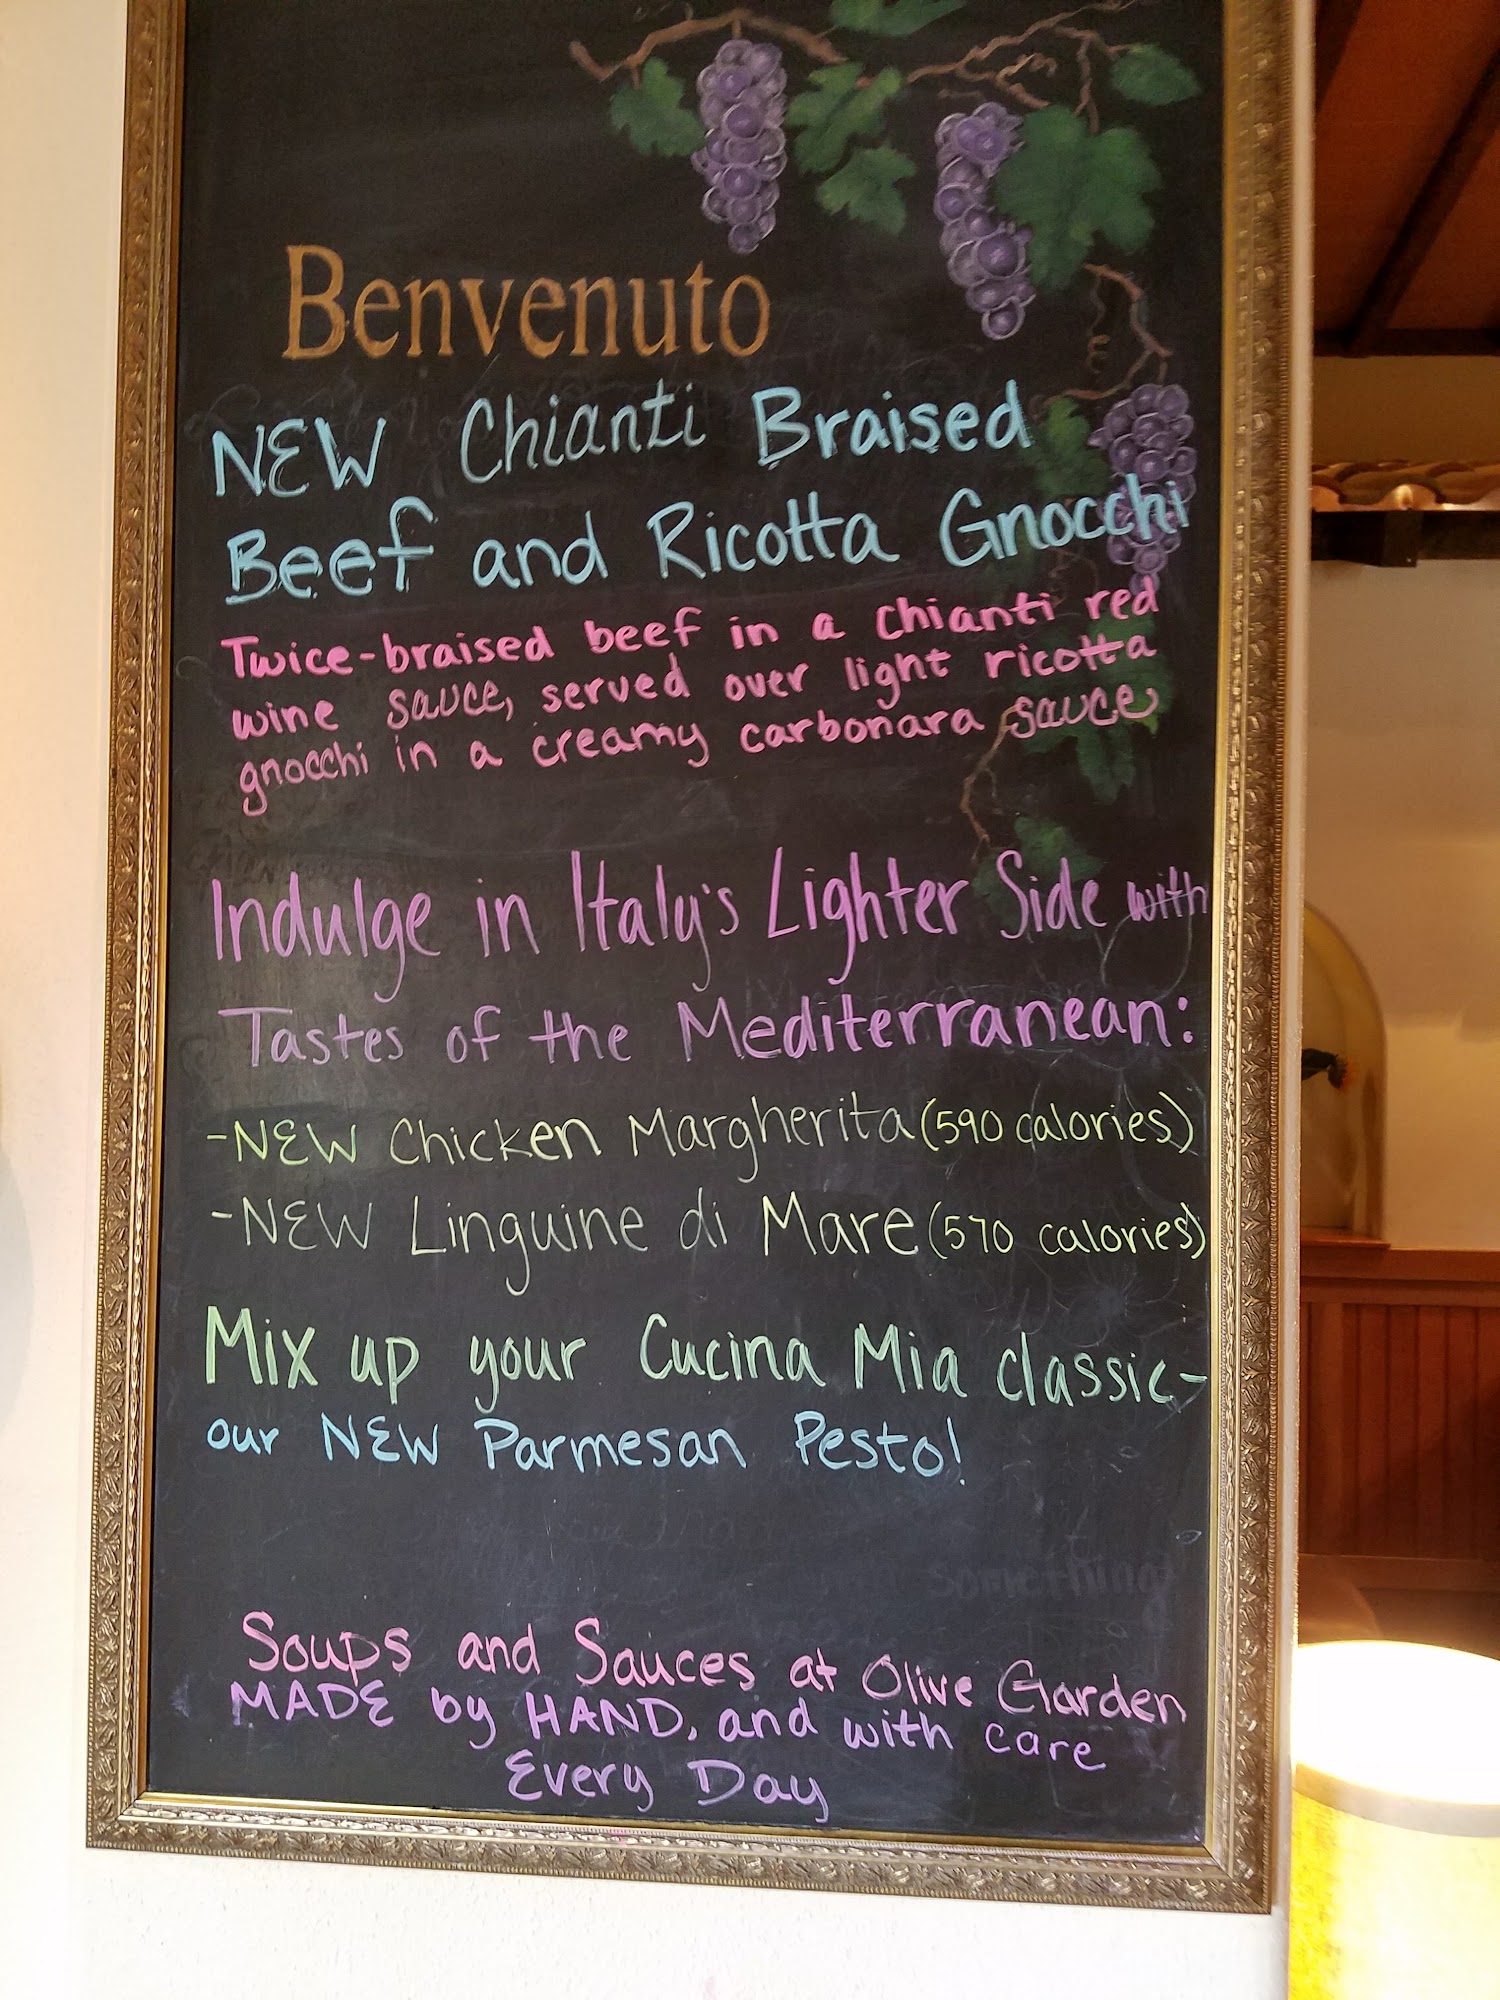 Benvenuto
NEW Chianti Braised
Beef and Ricotta Gnocchi
Twice-braised beef in a chianti red
wine sauce, served over light ricotta
gnocchi in a creamy carbonara sauce
Indulge in Italy's Lighter Side with
Tastes of the Mediterranean:
-NEW Chicken Margherita (590 calories)
-NEW Linguine di Mare (570 calories)
Mix up your Cucina Mia classic-
our NEW Parmesan Pesto!
something
Soups and Sauces at Olive Garden
MADE by HAND, and with care
Every Day